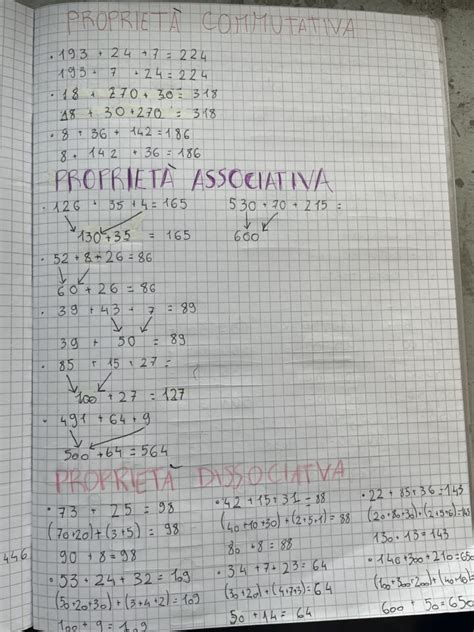 PROPRIETÀ COMMUTATIVA
• 193 + 24 + 7 = 224
193 + 7 + 24 = 224
• 18 + 270 + 30 = 318
18 + 30 + 270 = 318
• 8 + 36 + 142 = 186
8 + 142 + 36 = 186
PROPRIETÀ ASSOCIATIVA
• 126 + 35 + 4 = 165
130 + 35 = 165
530 + 70 + 215 =
600
• 52 + 8 + 26 = 86
60 + 26 = 86
• 39 + 43 + 7 = 89
39 + 50 = 89
• 85 + 15 + 27 =
100 + 27 = 127
• 491 + 64 + 9
500 + 64 = 564
PROPRIETÀ DISSOCIATVA
• 73 + 25 = 98
(70+20) + (3+5) = 98
90 + 8 = 98
• 53 + 24 + 32 = 109
(50+20+30) + (3+4+2) = 109
100 + 9 = 109
• 42 + 15 + 31 = 88
(40+10+30) + (2+5+1) = 88
80 + 8 = 88
• 34 + 7 + 23 = 64
(30+20) + (4+7+3) = 64
50 + 14 = 64
• 22 + 85 + 36 = 143
(20+80+30) + (2+5+6) =
130 + 13 = 143
• 146 + 300 + 210 = 650
(100+300+200) + (40+10)
600 + 50 = 650
446